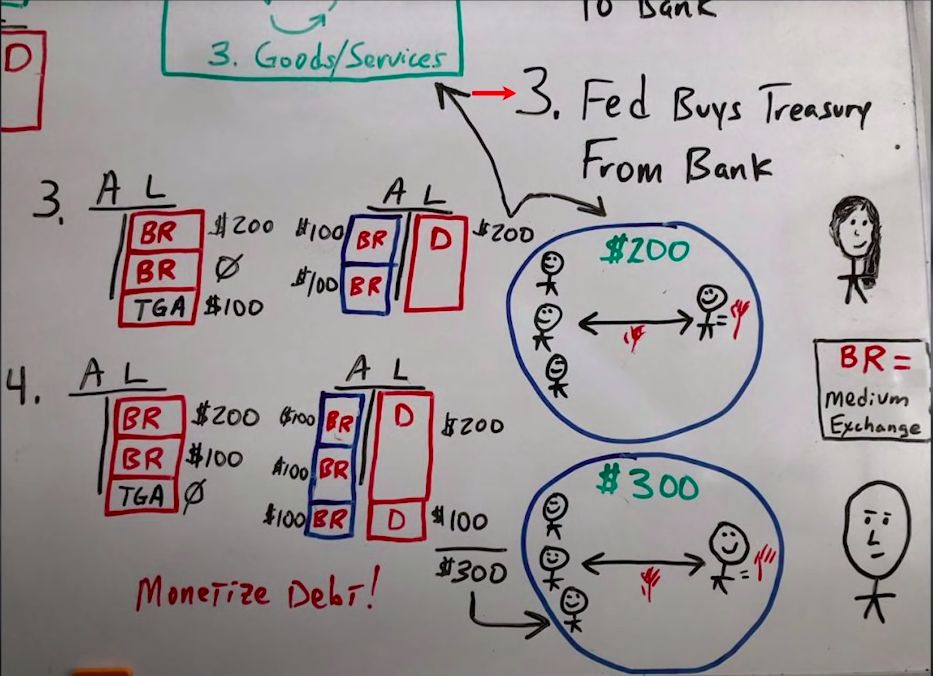 To Bank
D
3. Goods/Services
3. Fed Buys Treasury
From Bank
3.
A L
BR $200
BR Ø
TGA $100
A L
$100 BR D $200
$100 BR
$200
4.
A L
BR $200
BR $100
TGA Ø
A L
$100 BR D $200
$100 BR
$100 BR D $100
$300
$300
BR =
Medium
Exchange
Monetize Debt!